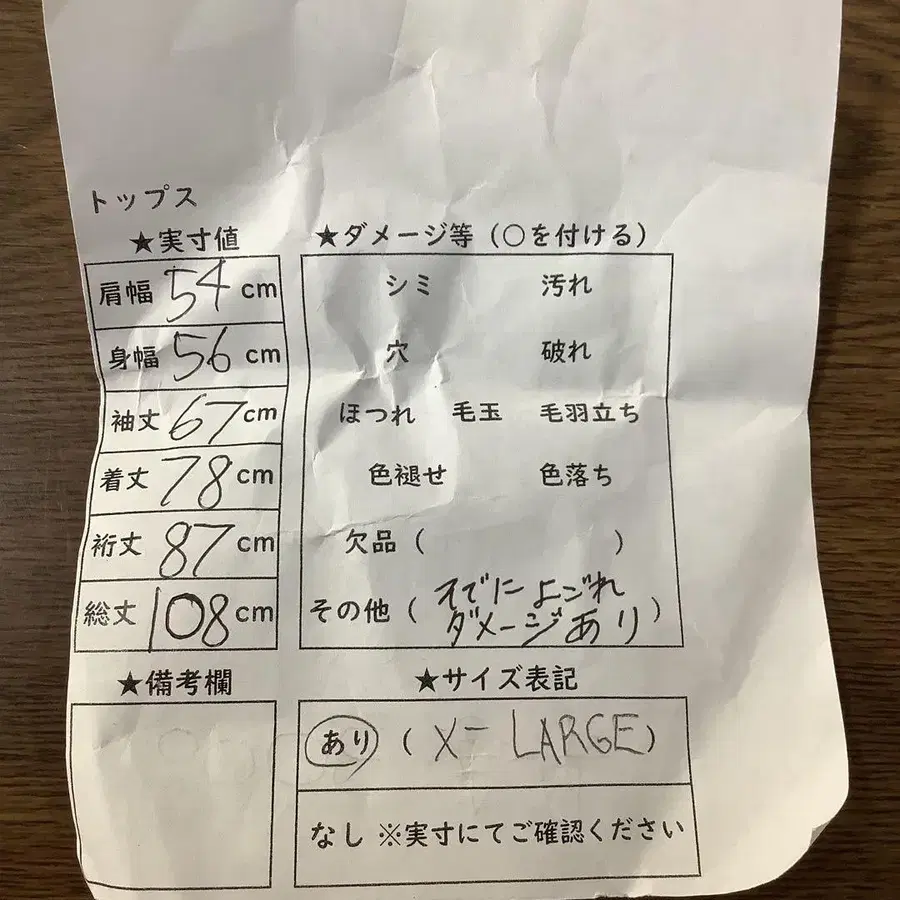 トップス
★実寸値
肩幅 54 cm
身幅 56 cm
袖丈 67 cm
着丈 78 cm
裄丈 87 cm
総丈 108 cm
★備考欄
★ダメージ等（○を付ける）
シミ 汚れ
穴 破れ
ほつれ 毛玉 毛羽立ち
色褪せ 色落ち
欠品（ ）
その他（そでによごれ
ダメージあり）
★サイズ表記
あり（X-LARGE）
なし ※実寸にてご確認ください